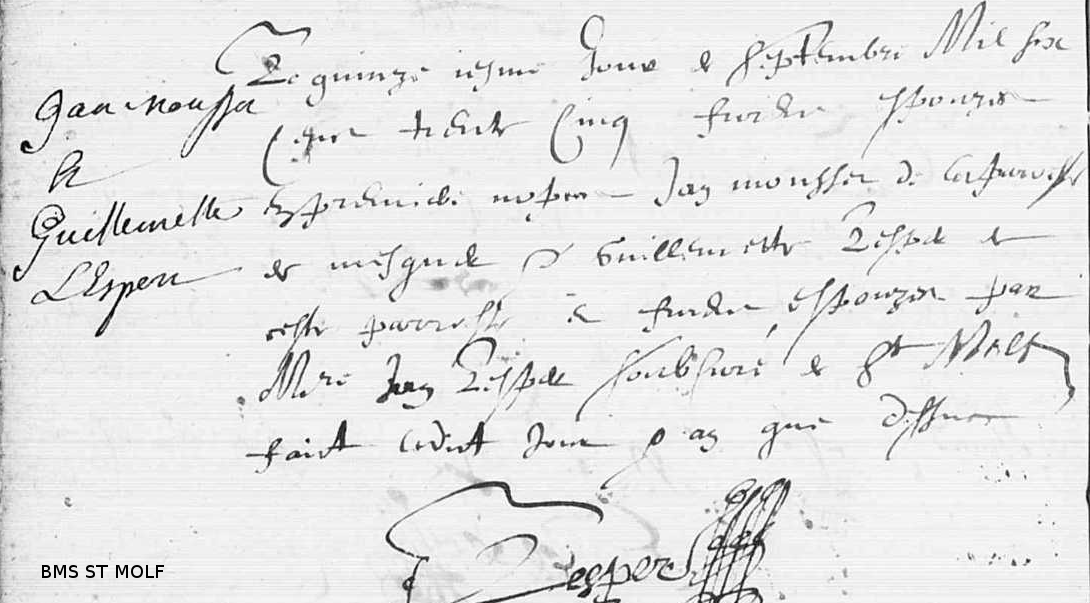 Jan Mousser
&
Guillemette
LEsper
Le quinze iesme Jour de septembre Mil six
cent trente Cinq furent espouzes
Jan mousser de la parroisse
de mesquer & Guillemette Lesper de
ceste parroisse & furent espouzes par
Mre Jan Lesper soubscure de St Molf
faict ledict Jour & an que dessus
Lesper
BMS ST MOLF